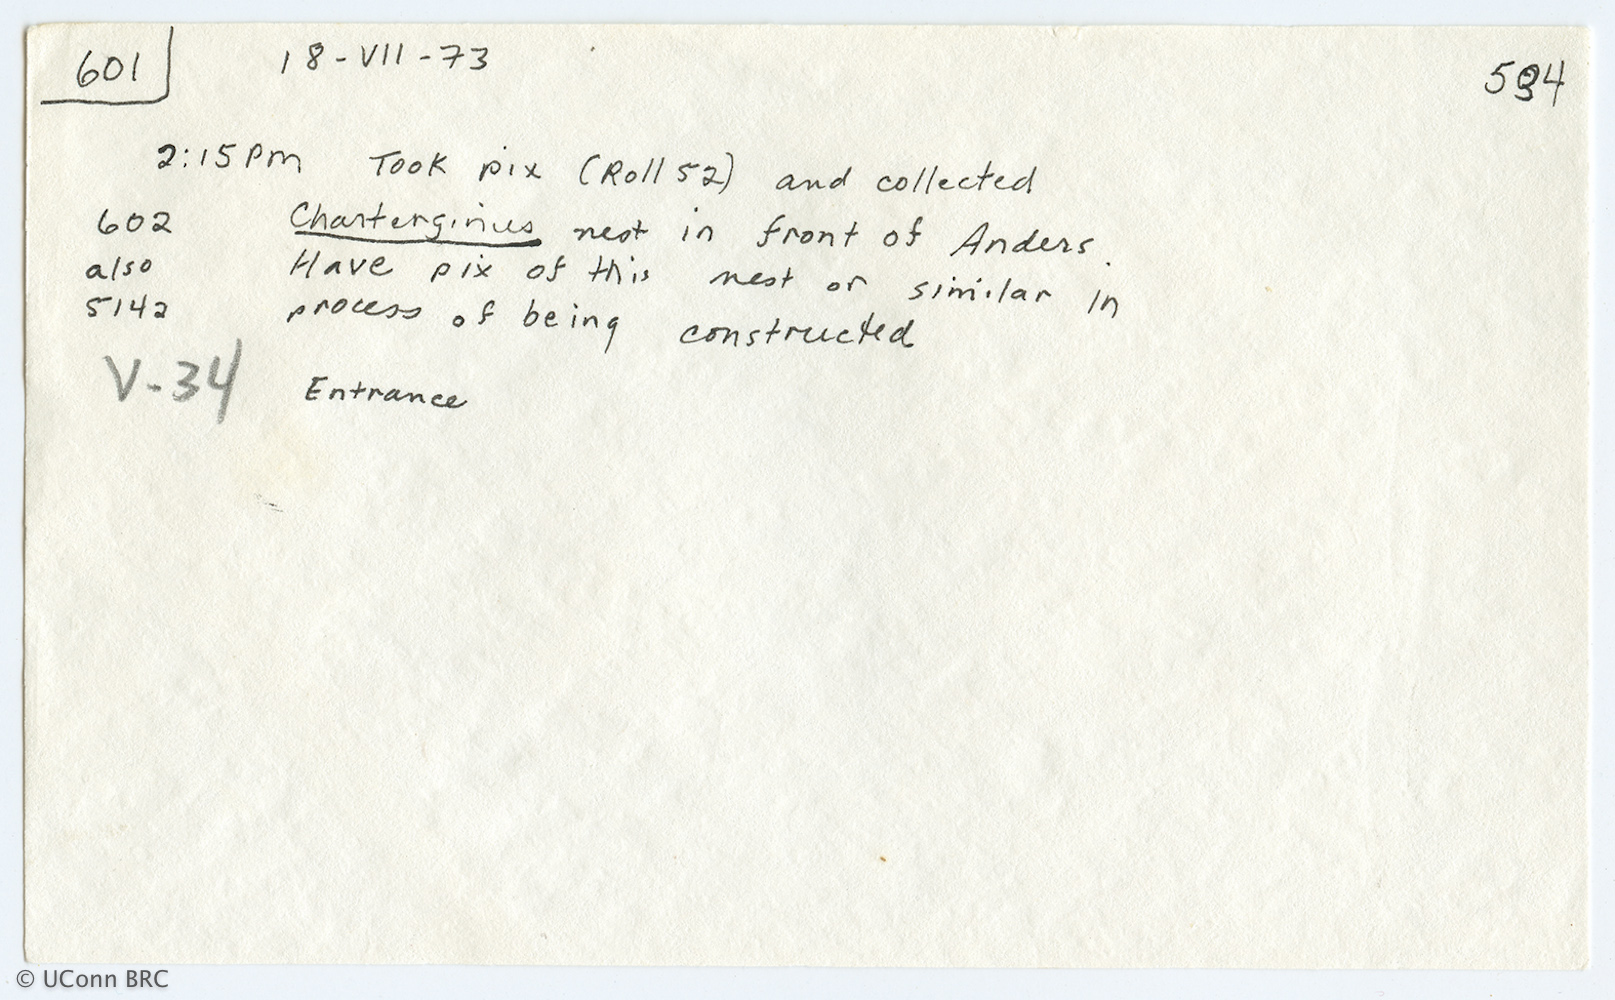 601 18-VII-73 534
2:15 Pm Took pix (Roll 52) and collected
602 Charterginus nest in front of Anders.
also Have pix of this nest or similar in
5142 process of being constructed
V-34 Entrance
© UConn BRC